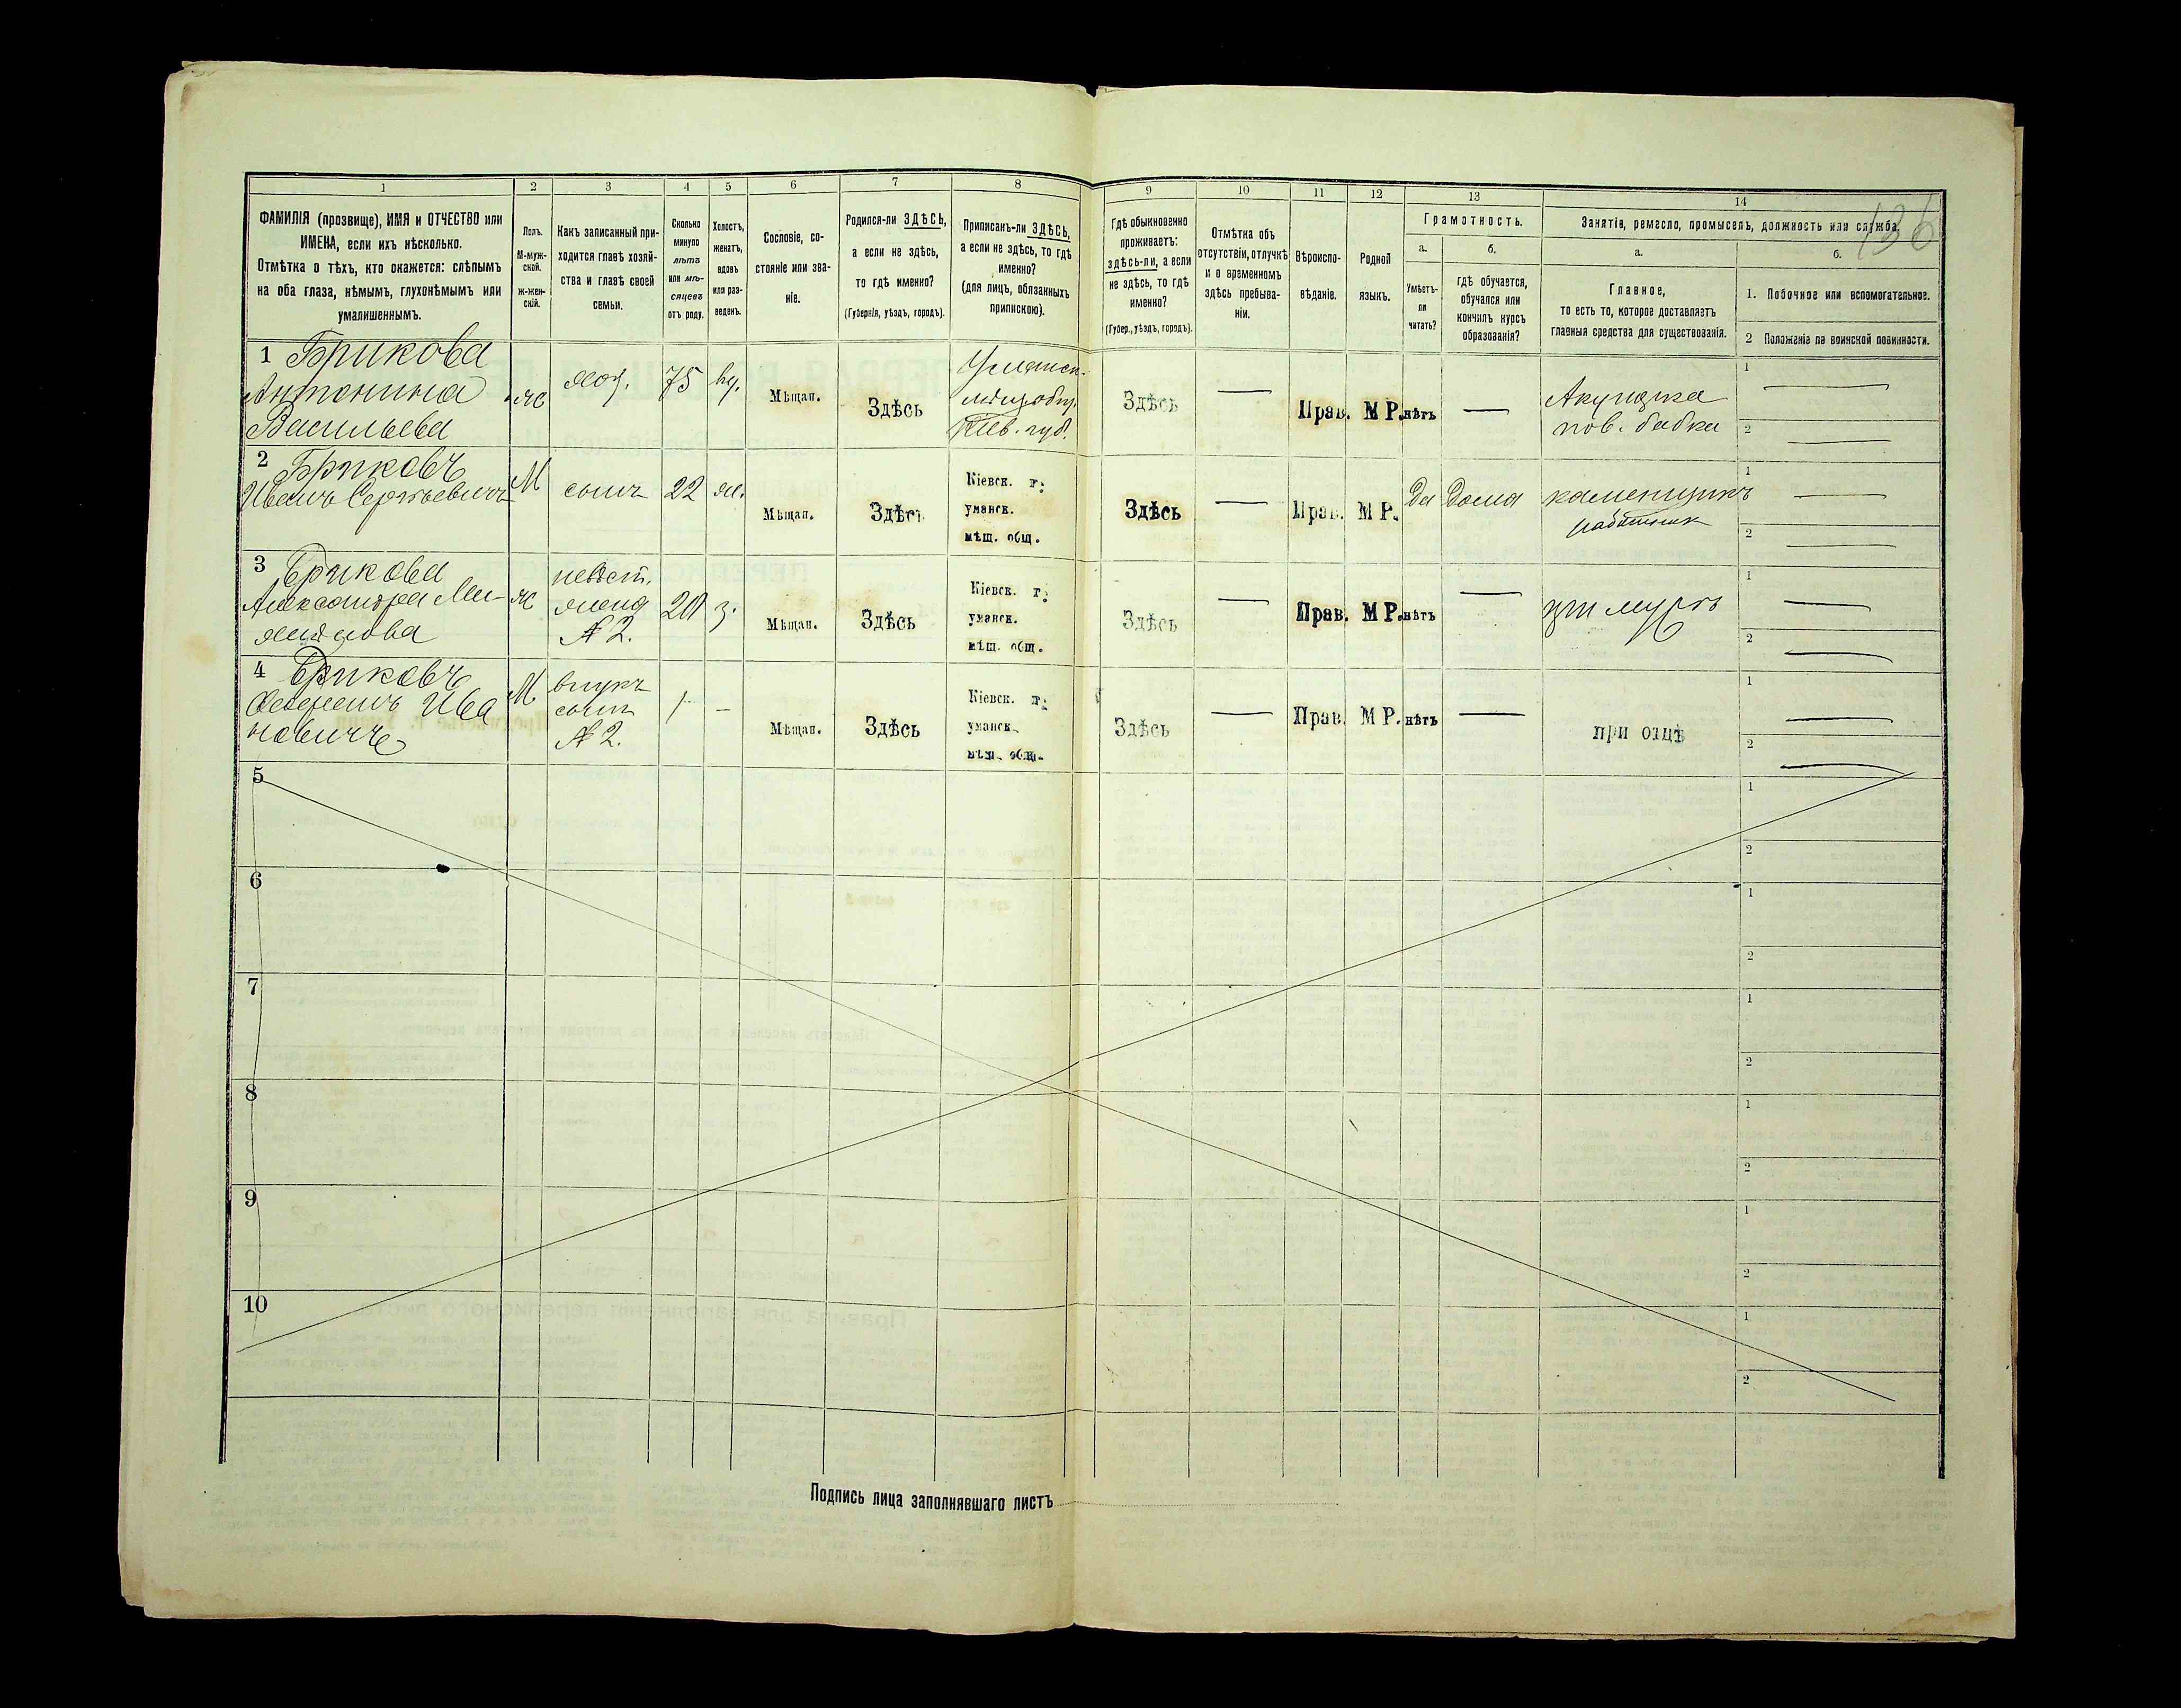 1 2 3 4 5 6 7 8 9 10 11 12 13 14
ФАМИЛІЯ (прозвище), ИМЯ и ОТЧЕСТВО или
ИМЕНА, если ихъ нѣсколько.
Отмѣтка о тѣхъ, кто окажется: слѣпымъ
на оба глаза, нѣмымъ, глухонѣмымъ или
умалишеннымъ.
Полъ.
М-муж-
ской.
ж-жен-
скій.
Какъ записанный при-
ходится главѣ хозяй-
ства и главѣ своей
семьи.
Сколько
минуло
лѣтъ
или мѣ-
сяцевъ
отъ роду.
Холостъ,
женатъ,
вдовъ
или раз-
веденъ.
Сословіе, со-
стояніе или зва-
ніе.
Родился-ли ЗДѢСЬ,
а если не здѣсь,
то гдѣ именно?
(Губернія, уѣздъ, городъ).
Приписанъ-ли ЗДѢСЬ,
а если не здѣсь, то гдѣ
именно?
(для лицъ, обязанныхъ
припискою).
Гдѣ обыкновенно
проживаетъ:
здѣсь-ли, а если
не здѣсь, то гдѣ
именно?
(Губер., уѣздъ, городъ).
Отмѣтка объ
отсутствіи, отлучкѣ
и о временномъ
здѣсь пребыва-
ніи.
Вѣроиспо-
вѣданіе.
Родной
языкъ.
Грамотность.
а.
Умѣетъ-
ли
читать?
б.
гдѣ обучается,
обучался или
кончилъ курсъ
образованія?
Занятіе, ремесло, промыселъ, должность или служба.
136
а.
Главное,
то есть то, которое доставляетъ
главныя средства для существованія.
б.
1. Побочное или вспомогательное.
2 Положеніе по воинской повинности.
1 Брикова
Антонина
Васильева
ж
хоз.
75
вд.
Мѣщан.
Здѣсь
Уманск.
мѣщ. общ.
Кіев. губ.
Здѣсь
Прав.
М Р.
нѣтъ
Акушерка
пов. бабка
1
2
2 Бриковъ
Иванъ Сергѣевичъ
М
сынъ
22
ж.
Мѣщан.
Здѣсь
Кіевск. г.
уманск.
мѣщ. общ.
Здѣсь
Прав.
М Р.
Да
Дома
каменщикъ
работник
1
2
3 Брикова
Александра
ж
невѣст.
жена
№ 2.
20
з.
Мѣщан.
Здѣсь
Кіевск. г.
уманск.
мѣщ. общ.
Здѣсь
Прав.
М Р.
нѣтъ
при мужѣ
1
2
4 Бриковъ
Ива
новичъ
М
внукъ
сынъ
№ 2.
1
Мѣщан.
Здѣсь
Кіевск. г.
уманск.
мѣщ. общ.
Здѣсь
Прав.
М Р.
нѣтъ
при отцѣ
1
2
5
1
2
6
1
2
7
1
2
8
1
2
9
1
2
10
1
2
Подпись лица заполнявшаго листъ